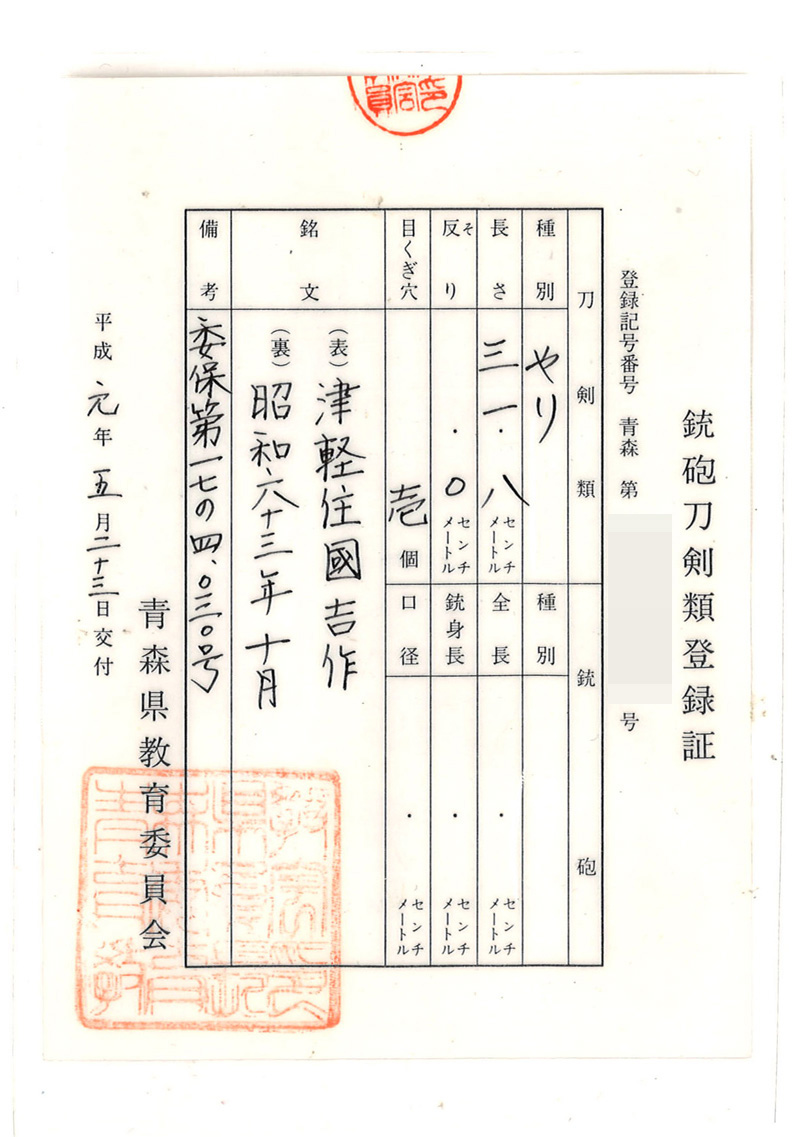 銃砲刀剣類登録証
登録記号番号 青森 第 号
刀剣類
銃砲
種別 やり
種別
長さ 三一.八 センチメートル
全長 . センチメートル
反り そ . 〇 センチメートル
銃身長 . センチメートル
目くぎ穴 壱個
口径 . センチメートル
銘文
(表) 津軽住國吉作
(裏) 昭和六十三年十月
備考 委保第一七の四、〇三〇号
青森県教育委員会
平成元年五月二十三日交付